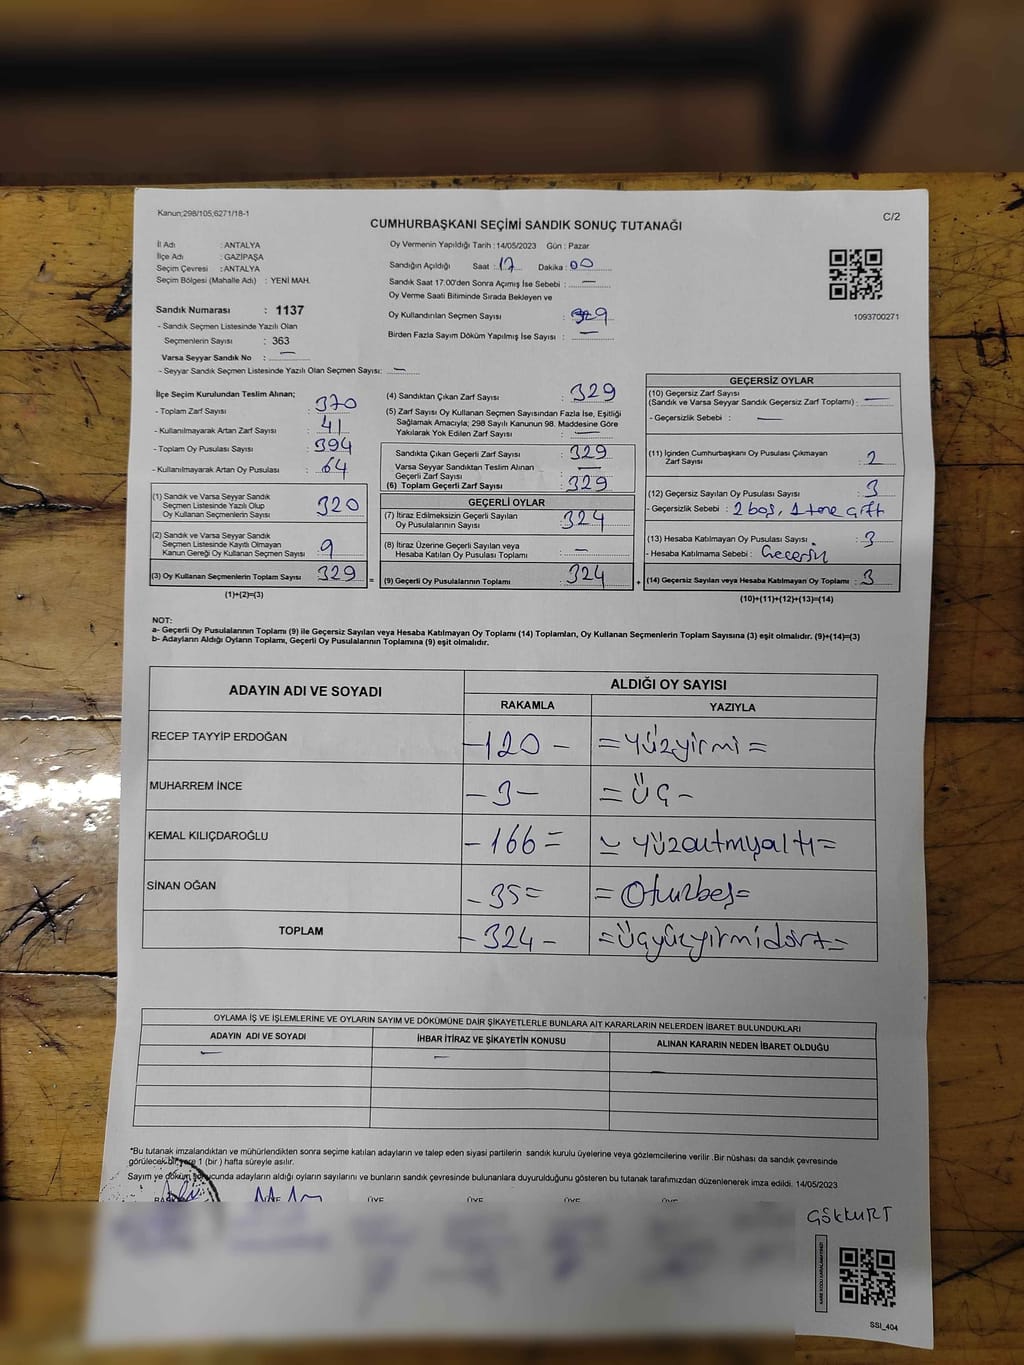 Kanun;298/105,6271/18-1
C/2
CUMHURBAŞKANI SEÇİMİ SANDIK SONUÇ TUTANAĞI
İl Adı : ANTALYA
İlçe Adı : GAZİPAŞA
Seçim Çevresi : ANTALYA
Seçim Bölgesi (Mahalle Adı) : YENİ MAH.
Sandık Numarası : 1137
- Sandık Seçmen Listesinde Yazılı Olan
Seçmenlerin Sayısı : 363
Varsa Seyyar Sandık No : —
- Seyyar Sandık Seçmen Listesinde Yazılı Olan Seçmen Sayısı: —
Oy Vermenin Yapıldığı Tarih : 14/05/2023 Gün : Pazar
Sandığın Açıldığı Saat : 17 Dakika : 00
Sandık Saat 17:00'den Sonra Açımış İse Sebebi : —
Oy Verme Saati Bitiminde Sırada Bekleyen ve
Oy Kullandırılan Seçmen Sayısı : 329
Birden Fazla Sayım Döküm Yapılmış İse Sayısı : —
1093700271
İlçe Seçim Kurulundan Teslim Alınan;
- Toplam Zarf Sayısı : 370
- Kullanılmayarak Artan Zarf Sayısı : 41
- Toplam Oy Pusulası Sayısı : 394
- Kullanılmayarak Artan Oy Pusulası : 64
(1) Sandık ve Varsa Seyyar Sandık
Seçmen Listesinde Yazılı Olup
Oy Kullanan Seçmenlerin Sayısı : 320
(2) Sandık ve Varsa Seyyar Sandık
Seçmen Listesinde Kayıtlı Olmayan
Kanun Gereği Oy Kullanan Seçmen Sayısı : 9
(3) Oy Kullanan Seçmenlerin Toplam Sayısı : 329 =
(1)+(2)=(3)
(4) Sandıktan Çıkan Zarf Sayısı : 329
(5) Zarf Sayısı Oy Kullanan Seçmen Sayısından Fazla İse, Eşitliği
Sağlamak Amacıyla; 298 Sayılı Kanunun 98. Maddesine Göre
Yakılarak Yok Edilen Zarf Sayısı : —
Sandıkta Çıkan Geçerli Zarf Sayısı : 329
Varsa Seyyar Sandıktan Teslim Alınan
Geçerli Zarf Sayısı : —
(6) Toplam Geçerli Zarf Sayısı : 329
GEÇERLİ OYLAR
(7) İtiraz Edilmeksizin Geçerli Sayılan
Oy Pusulalarının Sayısı : 324
(8) İtiraz Üzerine Geçerli Sayılan veya
Hesaba Katılan Oy Pusulası Toplamı : —
(9) Geçerli Oy Pusulalarının Toplamı : 324 +
GEÇERSİZ OYLAR
(10) Geçersiz Zarf Sayısı
(Sandık ve Varsa Seyyar Sandık Geçersiz Zarf Toplamı) : —
- Geçersizlik Sebebi : —
(11) İçinden Cumhurbaşkanı Oy Pusulası Çıkmayan
Zarf Sayısı : 2
(12) Geçersiz Sayılan Oy Pusulası Sayısı : 3
- Geçersizlik Sebebi : 2 boş, 1 tane çift
(13) Hesaba Katılmayan Oy Pusulası Sayısı : 3
- Hesaba Katılmama Sebebi :
(14) Geçersiz Sayılan veya Hesaba Katılmayan Oy Toplamı : 3
(10)+(11)+(12)+(13)=(14)
NOT:
a- Geçerli Oy Pusulalarının Toplamı (9) ile Geçersiz Sayılan veya Hesaba Katılmayan Oy Toplamı (14) Toplamları, Oy Kullanan Seçmenlerin Toplam Sayısına (3) eşit olmalıdır. (9)+(14)=(3)
b- Adayların Aldığı Oyların Toplamı, Geçerli Oy Pusulalarının Toplamına (9) eşit olmalıdır.
ADAYIN ADI VE SOYADI
ALDIĞI OY SAYISI
RAKAMLA YAZIYLA
RECEP TAYYİP ERDOĞAN -120- =Yüzyirmi=
MUHARREM İNCE -3- =Üç-
KEMAL KILIÇDAROĞLU -166= =Yüzaltmışaltı=
SİNAN OĞAN -35= =Oturbeş=
TOPLAM -324- =Üçyüzyirmidört=
OYLAMA İŞ VE İŞLEMLERİNE VE OYLARIN SAYIM VE DÖKÜMÜNE DAİR ŞİKAYETLERLE BUNLARA AİT KARARLARIN NELERDEN İBARET BULUNDUKLARI
ADAYIN ADI VE SOYADI İHBAR İTİRAZ VE ŞİKAYETİN KONUSU ALINAN KARARIN NEDEN İBARET OLDUĞU
— — —
*Bu tutanak imzalandıktan ve mühürlendikten sonra seçime katılan adayların ve talep eden siyasi partilerin sandık kurulu üyelerine veya gözlemcilerine verilir .Bir nüshası da sandık çevresinde
görülecek bir yere 1 (bir ) hafta süreyle asılır.
Sayım ve döküm sonucunda adayların aldığı oyların sayılarını ve bunların sandık çevresinde bulunanlara duyurulduğunu gösteren bu tutanak tarafımızdan düzenlenerek imza edildi. 14/05/2023
ÜYE ÜYE ÜYE ÜYE
GÖKKURT
SSI_404